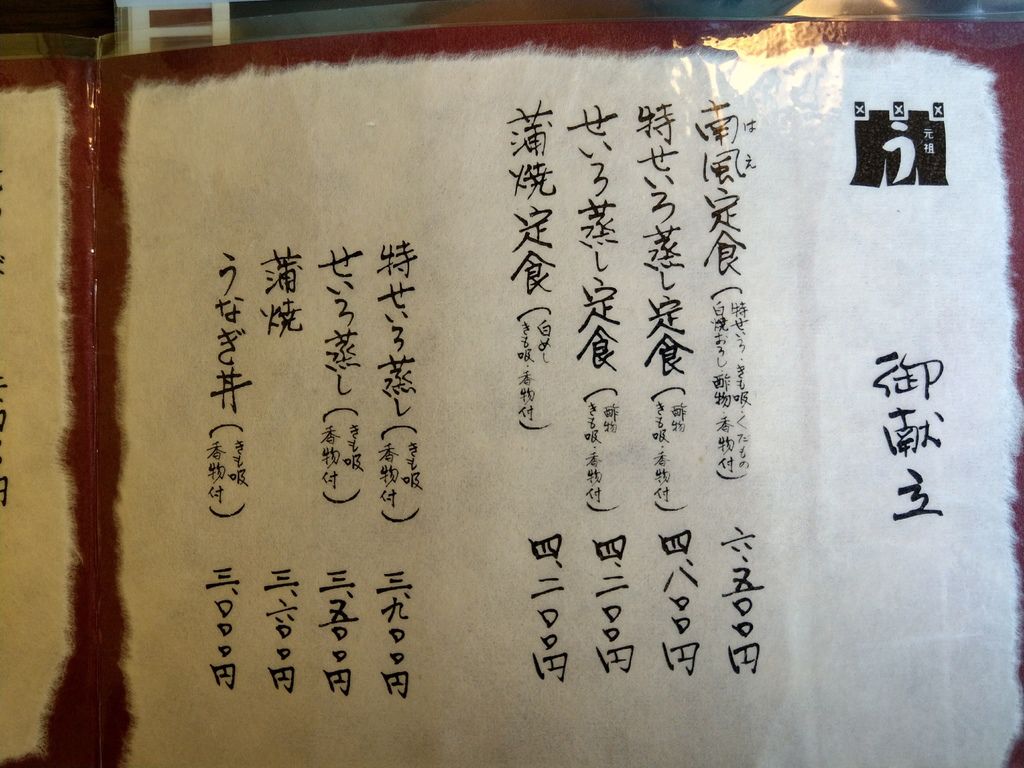 元祖
う
御献立
南風定食(特せいろ・きも吸・くだもの
白焼おろし 酢物・香物付) 六、五〇〇円
はえ
特せいろ蒸し定食(酢物
きも吸・香物付) 四、八〇〇円
せいろ蒸し定食(酢物
きも吸・香物付) 四、二〇〇円
蒲焼定食(白めし
きも吸・香物付) 四、二〇〇円
特せいろ蒸し(きも吸
香物付) 三、九〇〇円
せいろ蒸し(きも吸
香物付) 三、五〇〇円
蒲焼 三、六〇〇円
うなぎ丼(きも吸
香物付) 三、〇〇〇円